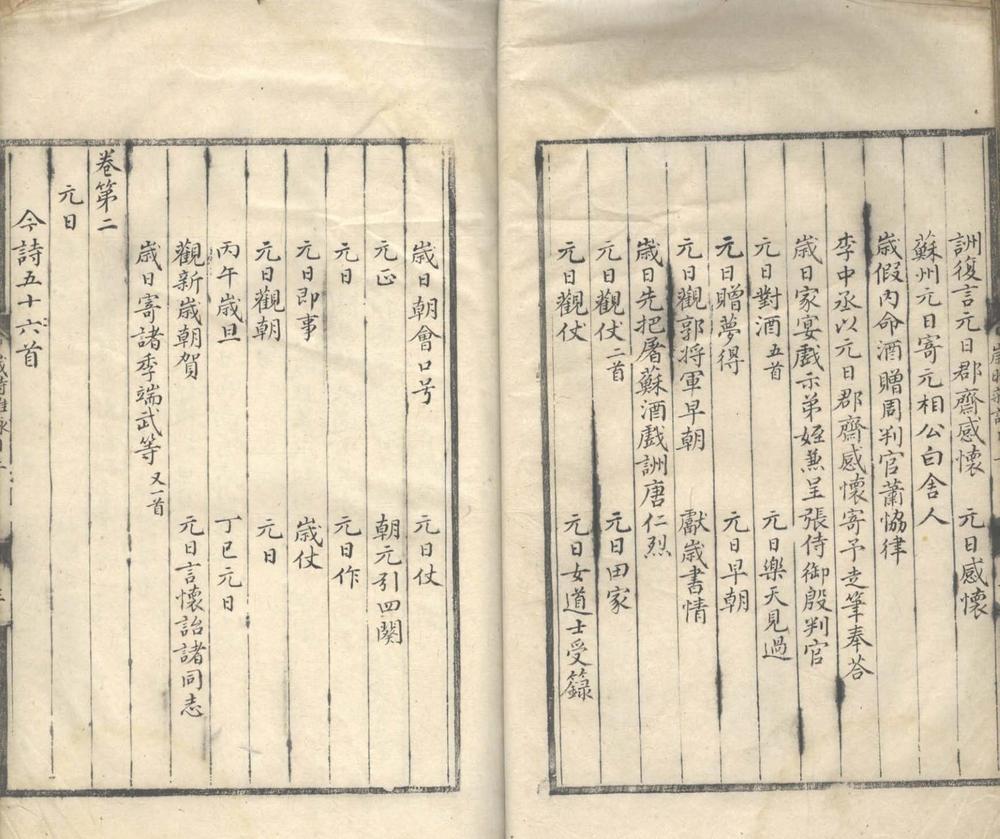 詶復言元日郡齋感懷　元日感懷
蘇州元日寄元相公白舍人
歲假內命酒贈周判官蕭協律
李中丞以元日郡齋感懷寄予走筆奉荅
歲日家宴戲示弟姪兼呈張侍御殷判官
元日對酒五首　元日樂天見過
元日贈夢得　元日早朝
元日觀郭將軍早朝　獻歲書情
歲日先把屠蘇酒戲詶唐仁烈
元日觀仗二首　元日田家
元日觀仗　元日女道士受籙
歲日朝會口号　元日仗
元正　朝元引四闋
元日　元日作
元日即事　歲仗
元日觀朝　元日
丙午歲旦　丁巳元日
觀新歲朝賀　元日言懷詒諸同志
歲日寄諸季端武等又一首
卷第二
元日
今詩五十六首